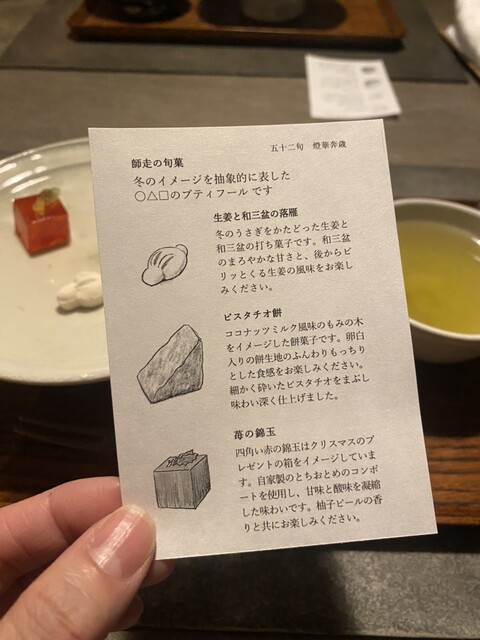 五十二旬　燈華奔歳
師走の旬菓
冬のイメージを抽象的に表した
○△□のプティフールです
生姜と和三盆の落雁
冬のうさぎをかたどった生姜と
和三盆の打ち菓子です。和三盆
のまろやかな甘さと、後からピ
リッとくる生姜の風味をお楽し
みください。
ピスタチオ餅
ココナッツミルク風味のもみの木
をイメージした餅菓子です。卵白
入りの餅生地のふんわりもっちり
とした食感をお楽しみください。
細かく砕いたピスタチオをまぶし
味わい深く仕上げました。
苺の錦玉
四角い赤の錦玉はクリスマスのプ
レゼントの箱をイメージしていま
す。自家製のとちおとめのコンポ
ートを使用し、甘味と酸味を凝縮
した味わいです。柚子ピールの香
りと共にお楽しみください。